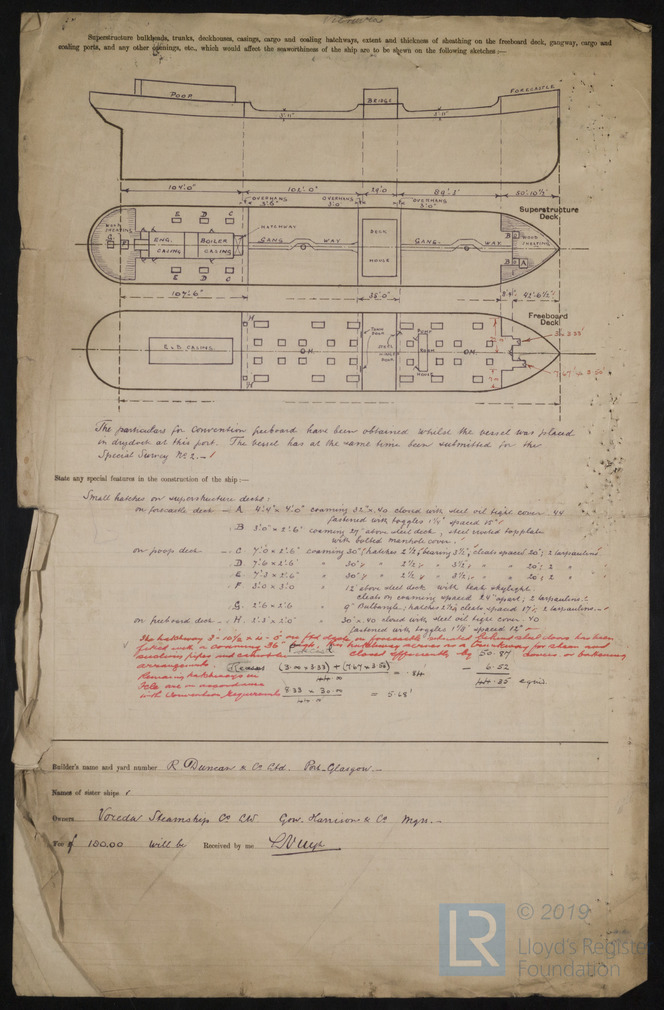 Superstructure bulkheads, trunks, deckhouses, casings, cargo and coaling hatchways, extent and thickness of sheathing on the freeboard deck, gangway, cargo and
coaling ports, and any other openings, etc., which would affect the seaworthiness of the ship are to be shewn on the following sketches:—
POOP.
BRIDGE
FORECASTLE
3'.11"
3'.11"
104'.0"
102'.0"
29'.0
89'.3"
50'.10½"
OVERHANG 3'.6"
OVERHANG 3'.0"
OVERHANG 3'.0"
Superstructure Deck
E D C
HATCHWAY
WOOD SHEATHING
G F
ENG. CASING
BOILER CASING
GANG WAY
DECK HOUSE
GANG WAY
B
WOOD SHEATHING
B A
E D C
107'.6"
35'.0"
8'.4"
42'.6½"
Freeboard Deck
E & B CASING.
O.H.
O.H.
PUMP ROOM
HOUSE
H
H
The particulars for Convention freeboard have been obtained whilst the vessel was placed
in drydock at this port. The vessel has at the same time been submitted for the
Special Survey No 2.—
State any special features in the construction of the ship:—
Small hatches on superstructure decks:
on forecastle deck — A 4'.4" x 4'.0" coaming 32" x .40 closed with steel oil tight cover .44
fastened with toggles 1¼" spaced 15"
B 3'.0" x 2'.6" coaming 27" above steel deck, steel riveted topplate
with bolted manhole cover.
on poop deck — C 7'.0 x 2'.6" coaming 30" (hatches 2½ (bearing 3½"; cleats spaced 20"; 2 tarpaulins
D 7'.6 x 2'.6" " 30" " 2½ " 3½" " 20"; 2 "
E 7'.3 x 2'.6" " 30" " 2½ " 3½" " 20"; 2 "
F 3'.0 x 3'.0 " 12" above steel deck with teak skylight;
cleats on coaming spaced 24" apart; 2 tarpaulins.
G. 2'.6 x 2'.6 " 9" Bulbangle; hatches 2½; cleats spaced 17"; 2 tarpaulins.
on freeboard deck — H. 2'.0" 30" x .40 closed with steel oil tight cover .40
fastened with toggles 1⅛" spaced 12"
The hatchway on fbd deck in forecastle situated behind steel doors has been
fitted with a coaming 36" high. This hatchway serves as a trunkway for steam and
suction pipes and cannot be closed efficiently by covers or battening
arrangements.
Remaining hatchways in
Fcle are in accordance
with Convention Requirements
(3.00 x 3.33) + (7.67 x 3.50) = .84
5.33 x 30.00 = 5.68'
50.87
— 6.52
44.35 equiv.
Builder's name and yard number R. Duncan & Co Ltd. Port-Glasgow.—
Names of sister ships
Owners Voreda Steamships Co Ltd Gow, Harrison & Co Mgrs.—
Fee £ 100.00 will be Received by me
LR
© 2019
Lloyd's Register
Foundation